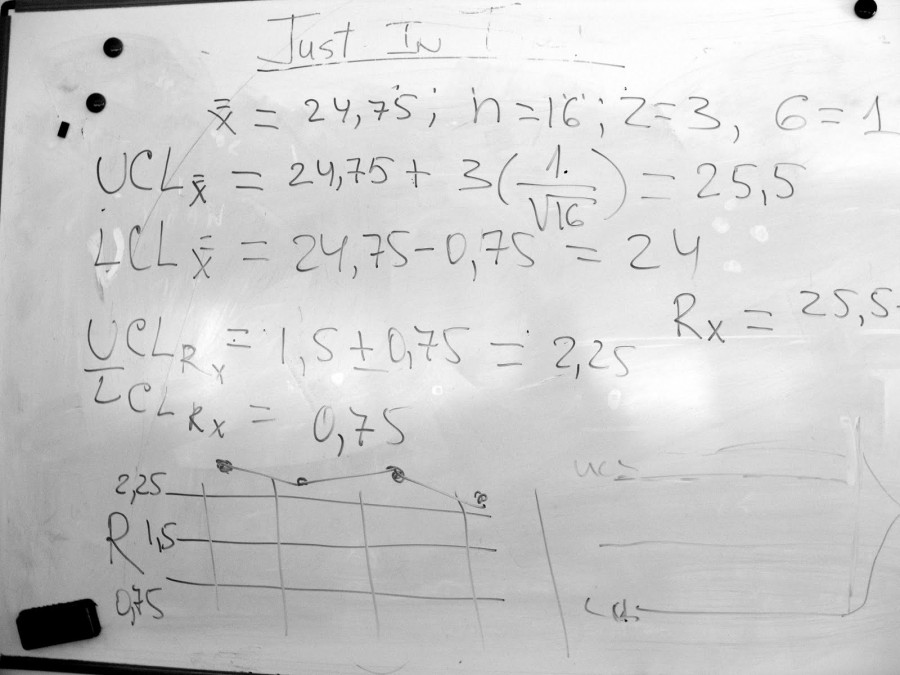 Just In T
x̿ = 24,75; n=16; z=3, б=1
UCL x̿ = 24,75 + 3(1/√16) = 25,5
LCL x̿ = 24,75-0,75 = 24
Rx = 25,5-
UCL Rx = 1,5±0,75 = 2,25
LCL Rx = 0,75
2,25
R 1,5
0,75